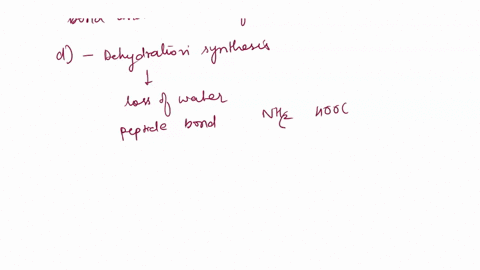 d) - Dehydration synthesis
↓
loss of water
peptide bond NH2 HOOC